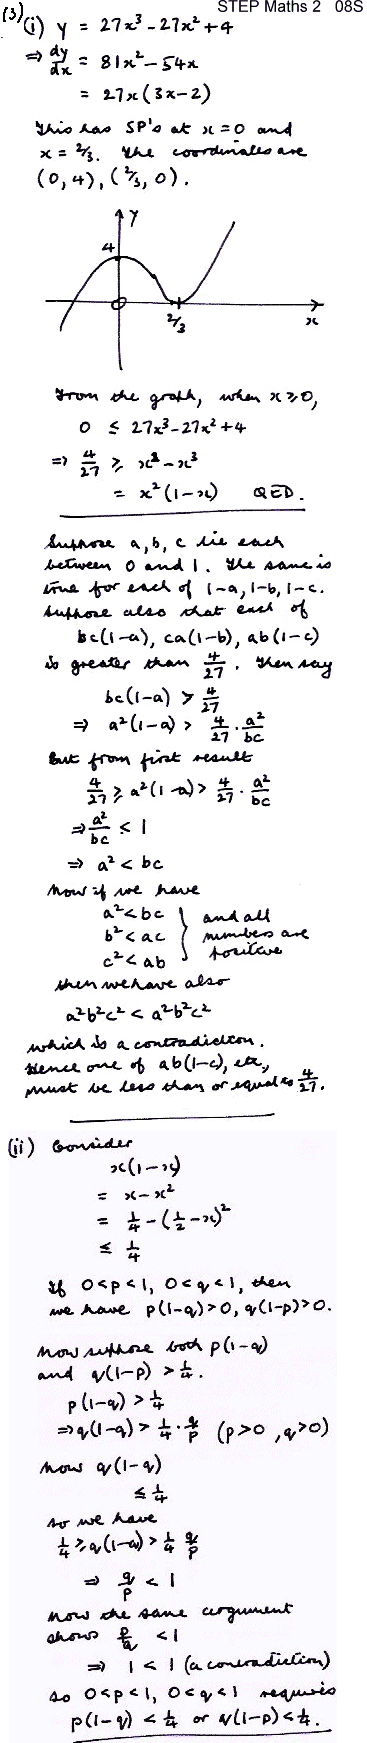 STEP Maths 2 08S
(3)
(i) y = 27x³ - 27x² + 4
⇒ dy/dx = 81x² - 54x
= 27x(3x-2)
This has SP's at x = 0 and
x = 2/3. The coordinates are
(0, 4), (2/3, 0).
y
4
O
2/3
x
From the graph, when x ≥ 0,
0 ≤ 27x³ - 27x² + 4
⇒ 4/27 ≥ x² - x³
= x²(1-x) QED.
Suppose a, b, c lie each
between 0 and 1. The same is
true for each of 1-a, 1-b, 1-c.
Suppose also that each of
bc(1-a), ca(1-b), ab(1-c)
is greater than 4/27. Then say
bc(1-a) > 4/27
⇒ a²(1-a) > 4/27 · a²/bc
But from first result
4/27 ≥ a²(1-a) > 4/27 · a²/bc
⇒ a²/bc ≤ 1
⇒ a² < bc
Now if we have
a² < bc } and all
b² < ac } numbers are
c² < ab } positive
then we have also
a²b²c² < a²b²c²
which is a contradiction.
Hence one of ab(1-c), etc,
must be less than or equal to 4/27.
(ii) Consider
x(1-x)
= x - x²
= 1/4 - (1/2 - x)²
≤ 1/4
If 0<p<1, 0<q<1, then
we have p(1-q)>0, q(1-p)>0.
Now suppose both p(1-q)
and q(1-p) > 1/4.
p(1-q) > 1/4
⇒ q(1-q) > 1/4 · q/p (p>0, q>0)
Now q(1-q)
≤ 1/4
so we have
1/4 ≥ q(1-q) > 1/4 q/p
⇒ q/p < 1
Now the same argument
shows p/q < 1
⇒ 1 < 1 (a contradiction)
so 0<p<1, 0<q<1 requires
p(1-q) < 1/4 or q(1-p) < 1/4.